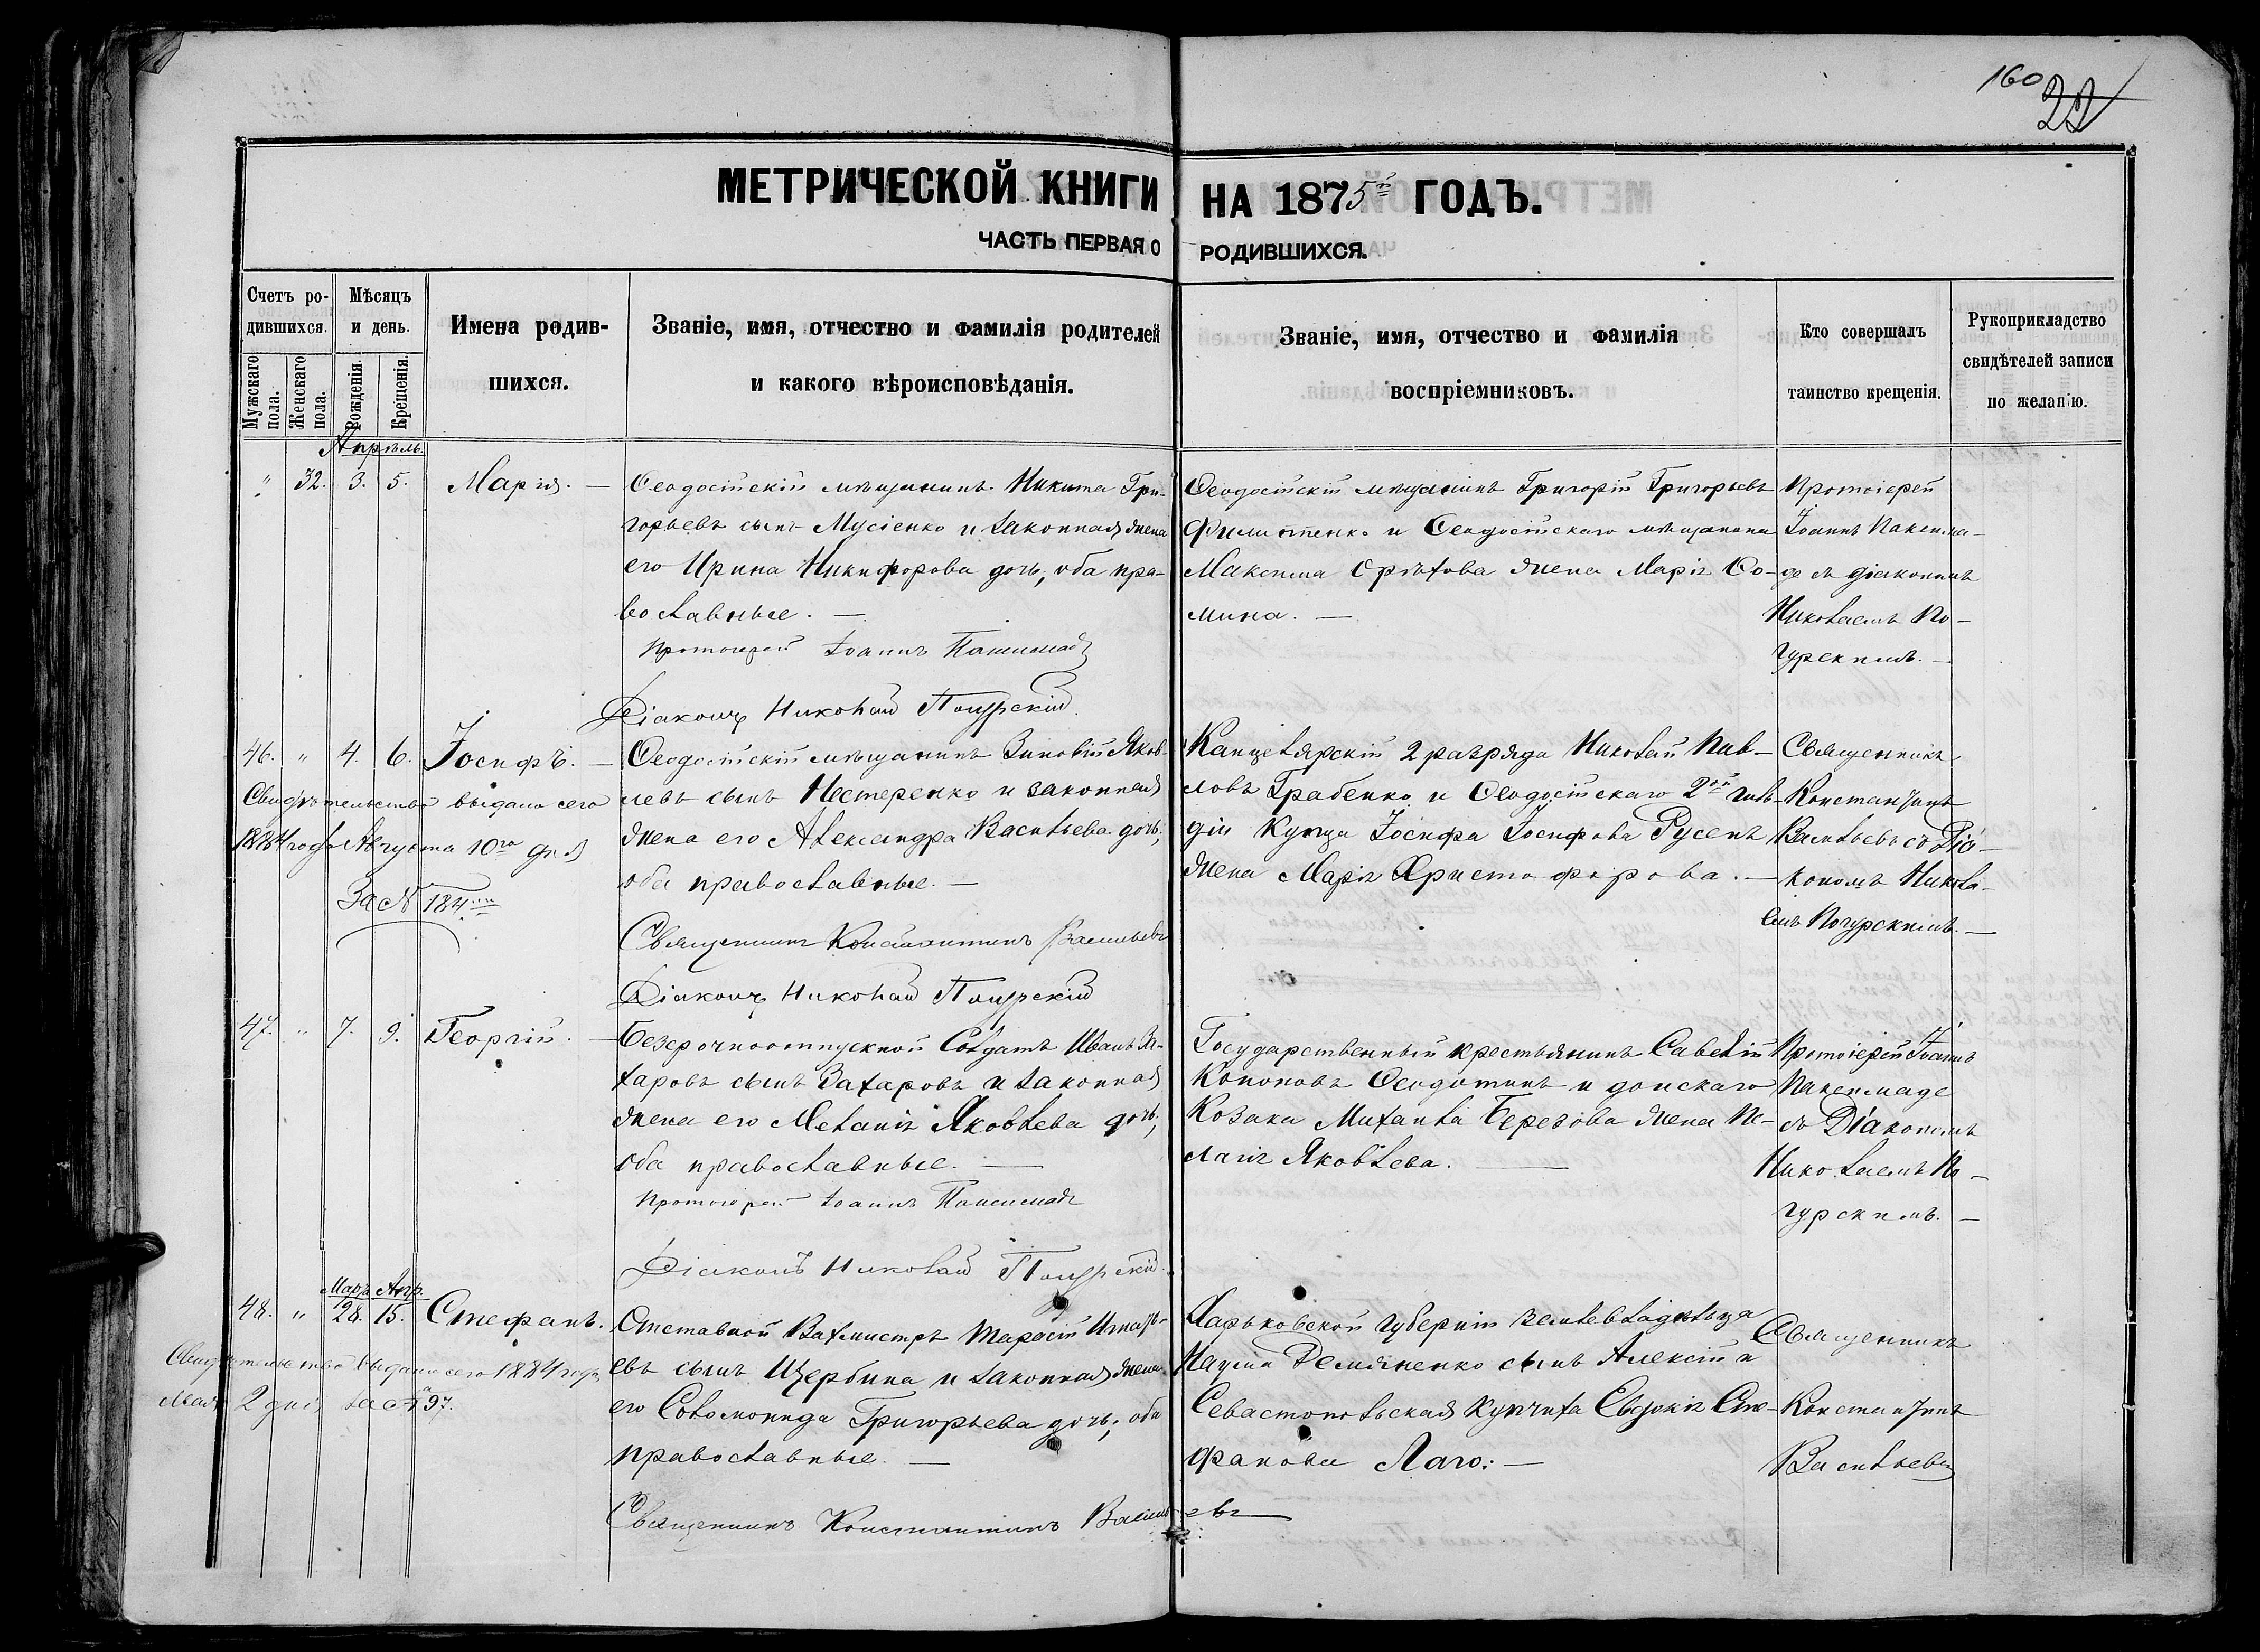 160
22
МЕТРИЧЕСКОЙ КНИГИ НА 1875й ГОДЪ.
ЧАСТЬ ПЕРВАЯ О РОДИВШИХСЯ.
Счетъ ро-
дившихся.
Мужскаго пола.
Женскаго пола.
Мѣсяцъ
и день.
Рожденія.
Крещенія.
Имена родив-
шихся.
Званіе, имя, отчество и фамилія родителей
и какого вѣроисповѣданія.
Званіе, имя, отчество и фамилія
воспріемниковъ.
Кто совершалъ
таинство крещенія.
Рукоприкладство
свидѣтелей записи
по желанію.
Апрѣль.
" 32. 3. 5. Марія. —
Ѳеодосійскій мѣщанинъ Никита Гри-
горьевъ сынъ Мусіенко и законная жена
его Ирина Никифорова дочь, оба пра-
вославные. —
Протоіерей Іоаннъ
Діаконъ Николай Погурскій.
Ѳеодосійскій мѣщанинъ Григорій Григорьевъ
и Ѳеодосійскаго мѣщанина
Максима жена Марія Ѳо-
мина. —
Протоіерей
Іоаннъ Пакема-
де съ діакономъ
Николаемъ По-
гурскимъ. —
46. " 4. 6. Іосифъ. —
Свидѣтельство выдано сего
1884 года Августа 10го дня
За № 184
Ѳеодосійскій мѣщанинъ Зиновій Яков-
левъ сынъ Нестеренко и законная
жена его Александра Васильева дочь,
оба православные. —
Священникъ Константинъ Васильевъ
Діаконъ Николай Погурскій
Канцелярскій 2 разряда Николай Пав-
ловъ Грабенко и Ѳеодосійскаго 2ой гиль-
діи Купца Іосифа Іосифова Русенъ
жена Марія Христофорова. —
Священникъ
Константинъ
Васильевъ съ Діа-
кономъ Никола-
емъ Погурскимъ. —
47. " 7. 9. Георгій. —
Безсрочноотпускной Солдатъ Иванъ За-
харовъ сынъ Захаровъ и законная
жена его Меланія Яковлева дочь,
оба православные. —
Протоіерей Іоаннъ
Діаконъ Николай Погурскій.
Государственный крестьянинъ Савелій
Кононовъ Ѳеодотинъ и донскаго
Козака Михаила Березова жена Пе-
лагія Яковлева. —
Протоіерей Іоаннъ
Пакемаде
съ Діакономъ
Николаемъ По-
гурскимъ. —
Март. Апр.
48. " 28. 15. Стефанъ.
Свидѣтельство выдано сего 1884 года
Мая 2 дня за № 97.
Отставной Вахмистръ Тарасій Игнать-
евъ сынъ Щербина и законная жена
его Соломонида Григорьева дочь, оба
православные. —
Священникъ Константинъ Васильевъ
Харьковской губерніи землевладѣльца
Наума Демяненко сынъ Алексій и
Севастопольская купчиха Евдокія Сте-
фанова Лаго. —
Священникъ
Константинъ
Васильевъ